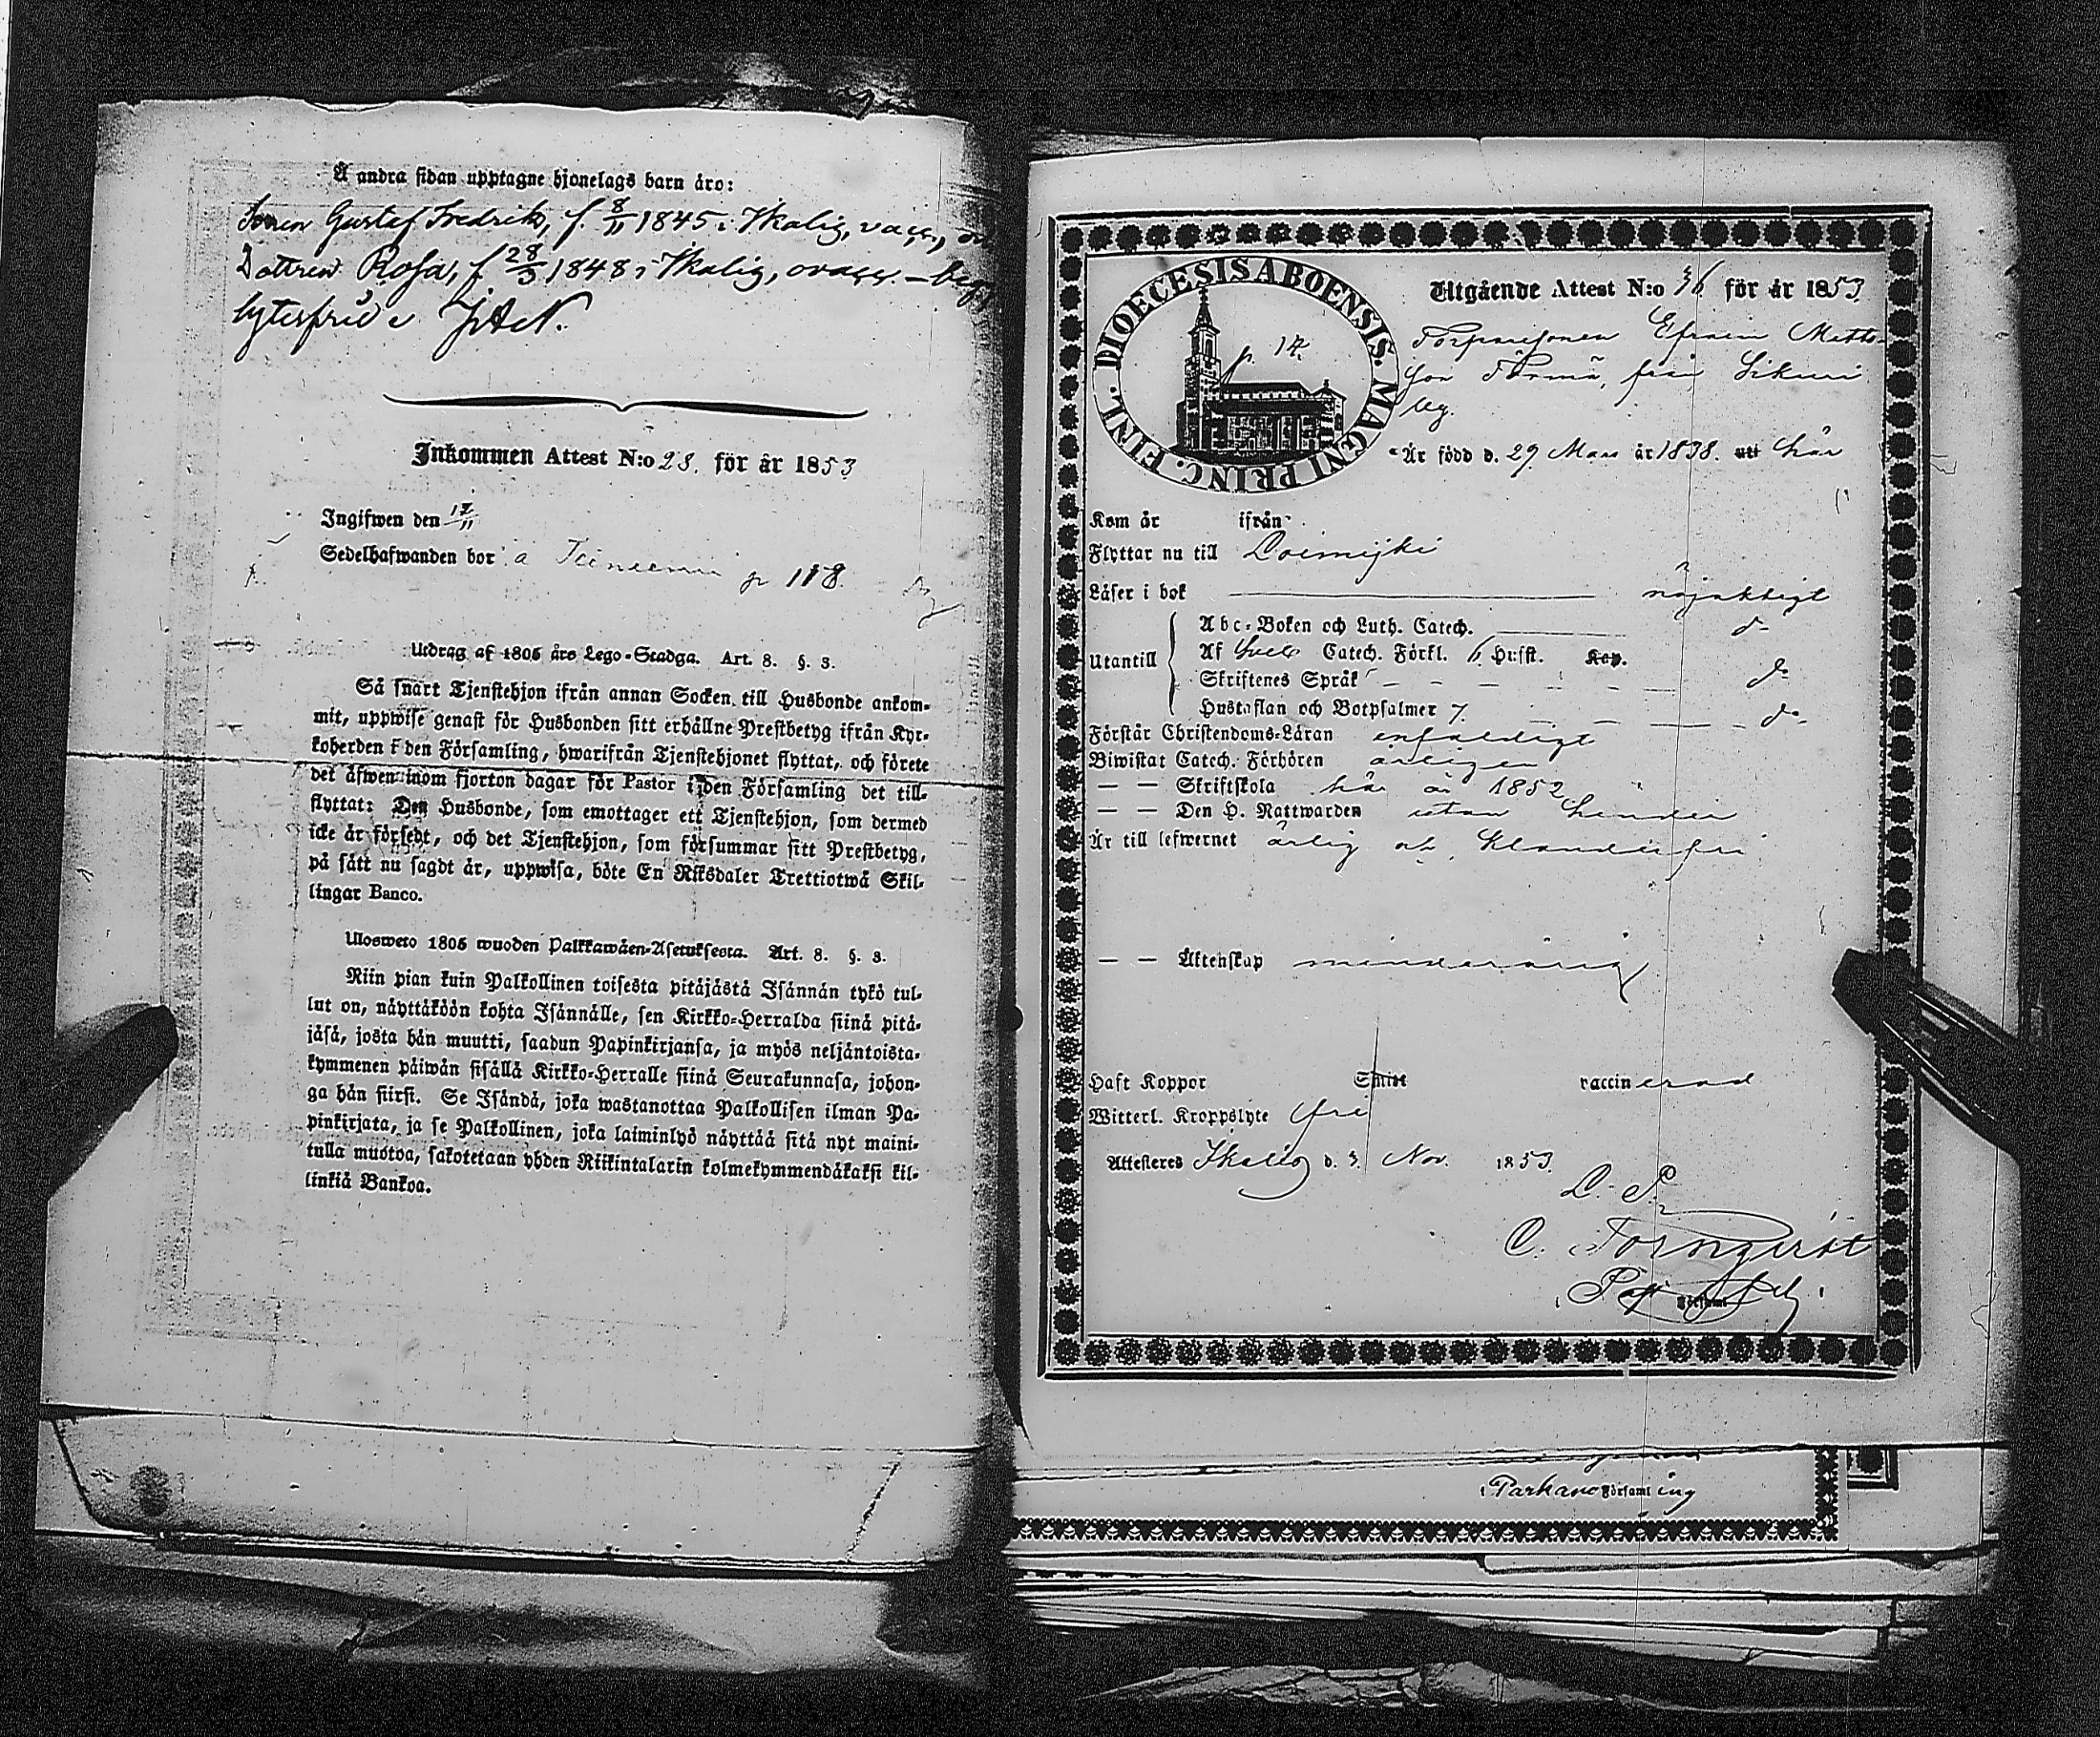 Å andra sidan upptagne hjonelags barn äro:
Sonen Gustaf Fredrik, f. 8/11 1845 i Ikalis, vacc.,
Dottren Rosa, f. 28/3 1848, i Ikalis, ovacc. –
lytesfri
Inkommen Attest N:o 28. för år 1853
Ingifwen den 17/11
Sedelhafwanden bor å p 118.
Utdrag af 1805 års Lego-Stadga. Art. 8. §. 3.
Så snart Tjenstehjon ifrån annan Socken till Husbonde ankom-
mit, uppwise genast för Husbonden sitt erhållne Prestbetyg ifrån Kyr-
koherden i den Församling, hwarifrån Tjenstehjonet flyttat, och förete
det äfwen inom fjorton dagar för Pastor i den Församling det till-
flyttat: Den Husbonde, som emottager ett Tjenstehjon, som dermed
icke är försedt, och det Tjenstehjon, som försummar sitt Prestbetyg,
på sätt nu sagdt är, uppwisa, böte En Riksdaler Trettiotwå Skil-
lingar Banco.
Ulosweto 1805 wuoden Palkkawäen-Asetuksesta. Art. 8. §. 3.
Niin pian kuin Palkollinen toisesta pitäjästä Isännän tykö tul-
lut on, näyttäköön kohta Isännälle, sen Kirkko-Herralda siinä pitä-
jäsä, josta hän muutti, saadun Papinkirjansa, ja myös neljäntoista-
kymmenen päiwän sisällä Kirkko-Herralle siinä Seurakunnasa, johon-
ga hän siirsi. Se Isändä, joka wastanottaa Palkollisen ilman Pa-
pinkirjata, ja se Palkollinen, joka laiminlyö näyttää sitä nyt maini-
tulla muotoa, sakotetaan yhden Riikintalarin kolmekymmendäkaksi kil-
linkiä Bankoa.
DIOECESIS ABOENSIS. MAGNI PRINC. FINL.
p. 12.
Utgående Attest N:o 36 för år 1853
Torparesonen Efraim Matts-
son från
by.
Är född d. 29 Mars år 1838. här
Kom år ifrån
Flyttar nu till Loimijoki
Läser i bok nöjaktigt
Utantill
Abc-Boken och Luth. Catech. d-
Af Sveb. Catech. Förkl. 6 Husst. Kap.
Skriftenes Språk d-
Hustaflan och Botpsalmer 7. d-
Förstår Christendoms-Läran enfaldigt
Biwistat Catech. Förhören årligen
— — Skriftskola här år 1852
— — Den H. Nattwarden utan hinder
Är till lefwernet ärlig och klanderfri
— — Äktenskap minderårig
Haft Koppor vaccinerad
Witterl. Kroppslyte fri
Attesteras Ikalis d. 3 Nov. 1853.
L. S.
C. Tornqvist
i Parkano Församling